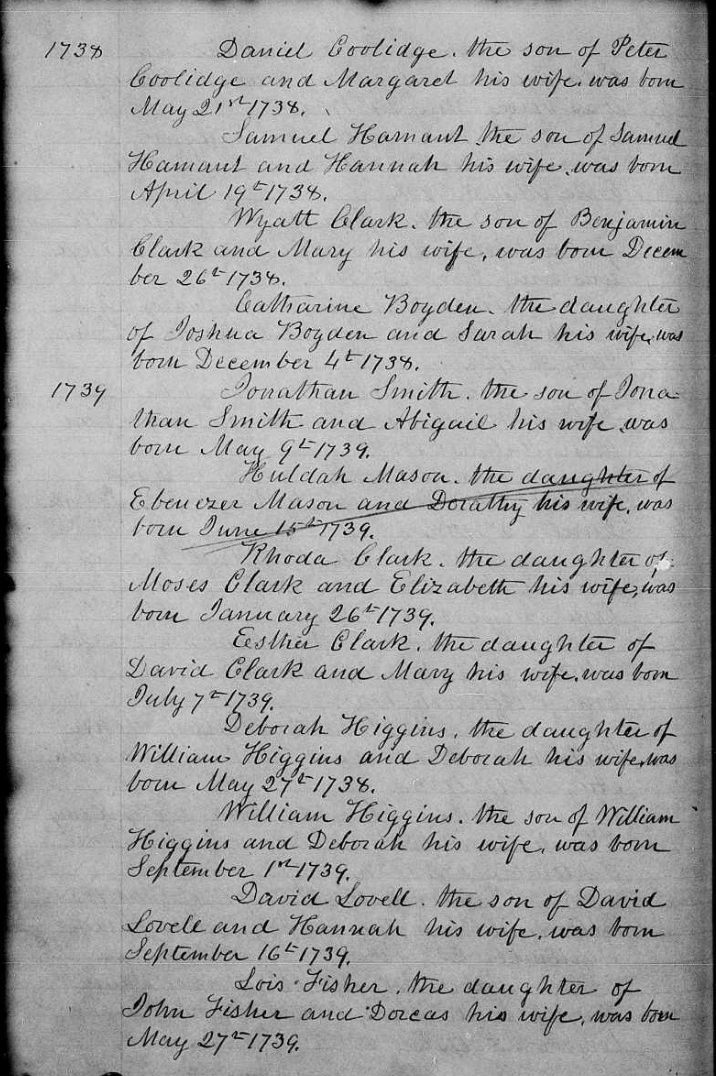 1738 Daniel Coolidge. the son of Peter
Coolidge and Margaret his wife. was born
May 21st 1738.
Samuel Hamant the son of Samuel
Hamant and Hannah his wife. was born
April 19th 1738.
Wyatt Clark. the son of Benjamin
Clark and Mary his wife, was born Decem
ber 26th 1738.
Catharine Boyden. the daughter
of Joshua Boyden and Sarah his wife, was
born December 4th 1738.
1739 Jonathan Smith. the son of Jona-
than Smith and Abigail his wife was
born May 9th 1739.
Huldah Mason. the daughter of
Ebenezer Mason and Dorathy his wife, was
born June 15th 1739.
Rhoda Clark. the daughter of
Moses Clark and Elizabeth his wife, was
born January 26th 1739.
Esther Clark. the daughter of
David Clark and Mary his wife. was born
July 7th 1739.
Deborah Higgins. the daughter of
William Higgins and Deborah his wife, was
born May 27th 1738.
William Higgins. the son of William
Higgins and Deborah his wife, was born
September 1st 1739.
David Lovell. the son of David
Lovell and Hannah his wife, was born
September 16th 1739.
Lois Fisher, the daughter of
John Fisher and Dorcas his wife, was born
May 27th 1739.